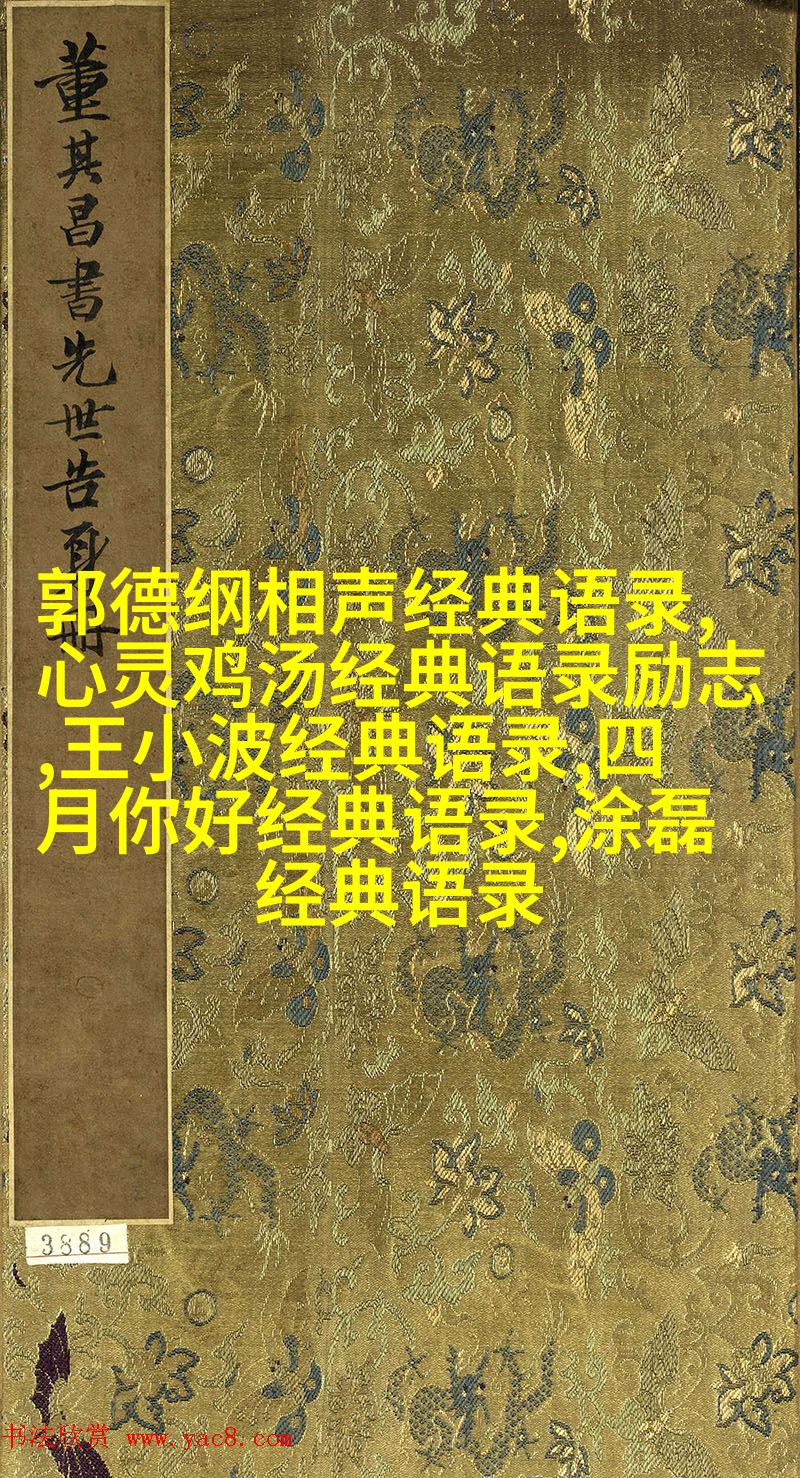 董其昌書先世告身冊
郭德纲相声经典语录,
心灵鸡汤经典语录励志
,王小波经典语录,四
月你好经典语录,涂磊
经典语录
3889
书法欣赏 www.yac8.com